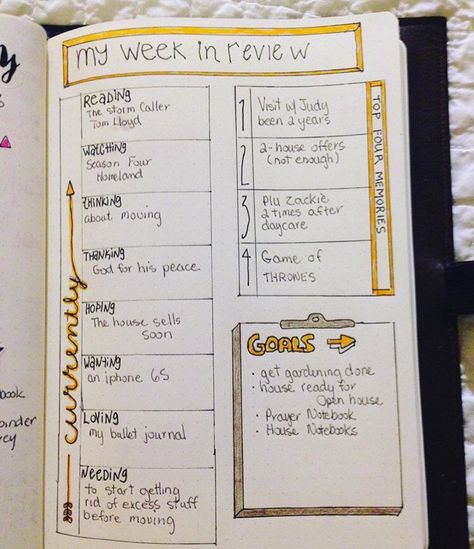 my week in review
currently
READING
The Storm Caller
Tom Lloyd
WATCHING
Season Four
Homeland
THINKING
about moving
THANKING
God for his peace
HOPING
The house sells
soon
WANTING
an iphone 6S
LOVING
my bullet journal
NEEDING
to start getting
rid of excess stuff
before moving
TOP FOUR MEMORIES
1 Visit w/ Judy
been 2 years
2 2-house offers
(not enough)
3 Plu Zackie
2 times after
daycare
4 Game of
THRONES
GOALS
• get gardening done
• house ready for
Open house
• Prayer Notebook
• House Notebooks